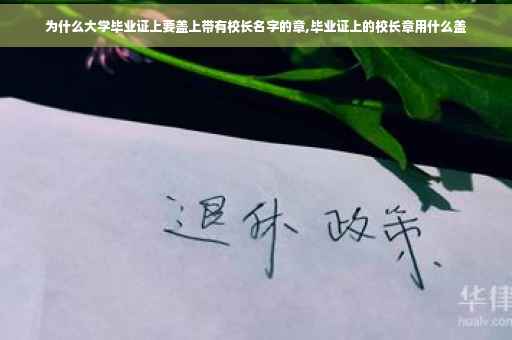 为什么大学毕业证上要盖上带有校长名字的章,毕业证上的校长章用什么盖
退休 政策
华律
hualv.com